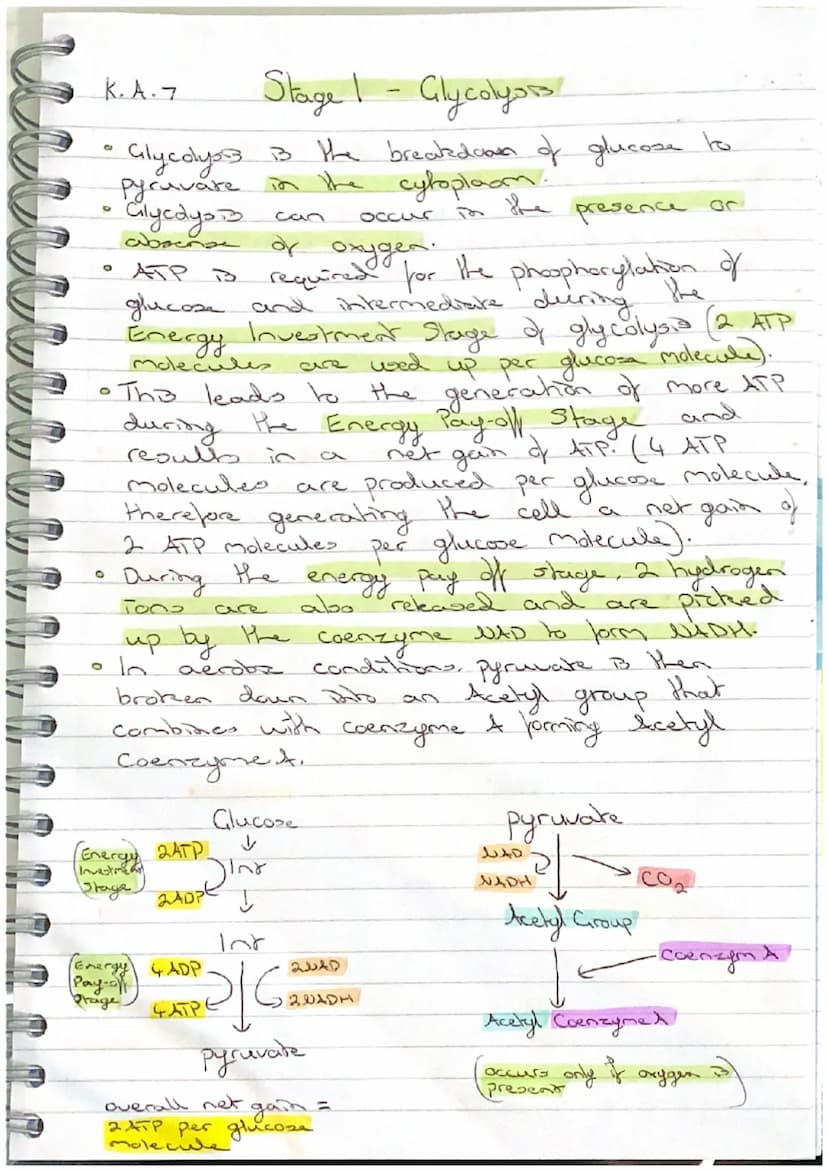 K.A.7 Stage 1 - Glycolysis
• Glycolysis is the breakdown of glucose to
pyruvate in the cytoplasm.
• Glycolysis can occur in the presence or
absense of oxygen.
• ATP is required for the phosphorylation of
glucose and intermediate during the
Energy Investment Stage of glycolysis (2 ATP
molecules are used up per glucose molecule).
• This leads to the generation of more ATP
during the Energy Pay-off Stage and
results in a net gain of ATP. (4 ATP
molecules are produced per glucose molecule,
therefore generating the cell a net gain of
2 ATP molecules per glucose molecule).
• During the energy pay off stage, 2 hydrogen
ions are also released and are picked
up by the coenzyme NAD to form NADH.
• In aerobic conditions, pyruvate is then
broken down into an Acetyl group that
combines with coenzyme A forming Acetyl
Coenzyme A.
Glucose
(Energy
Investment
Stage)
2ATP
2ADP
Int
Int
(Energy
Pay-off
Stage)
4 ADP
4 ATP
2NAD
2NADH
pyruvate
overall net gain =
2 ATP per glucose
molecule
pyruvate
NAD
NADH
CO2
Acetyl Group
Coenzym A
Acetyl Coenzyme A
(occurs only if oxygen is
present)